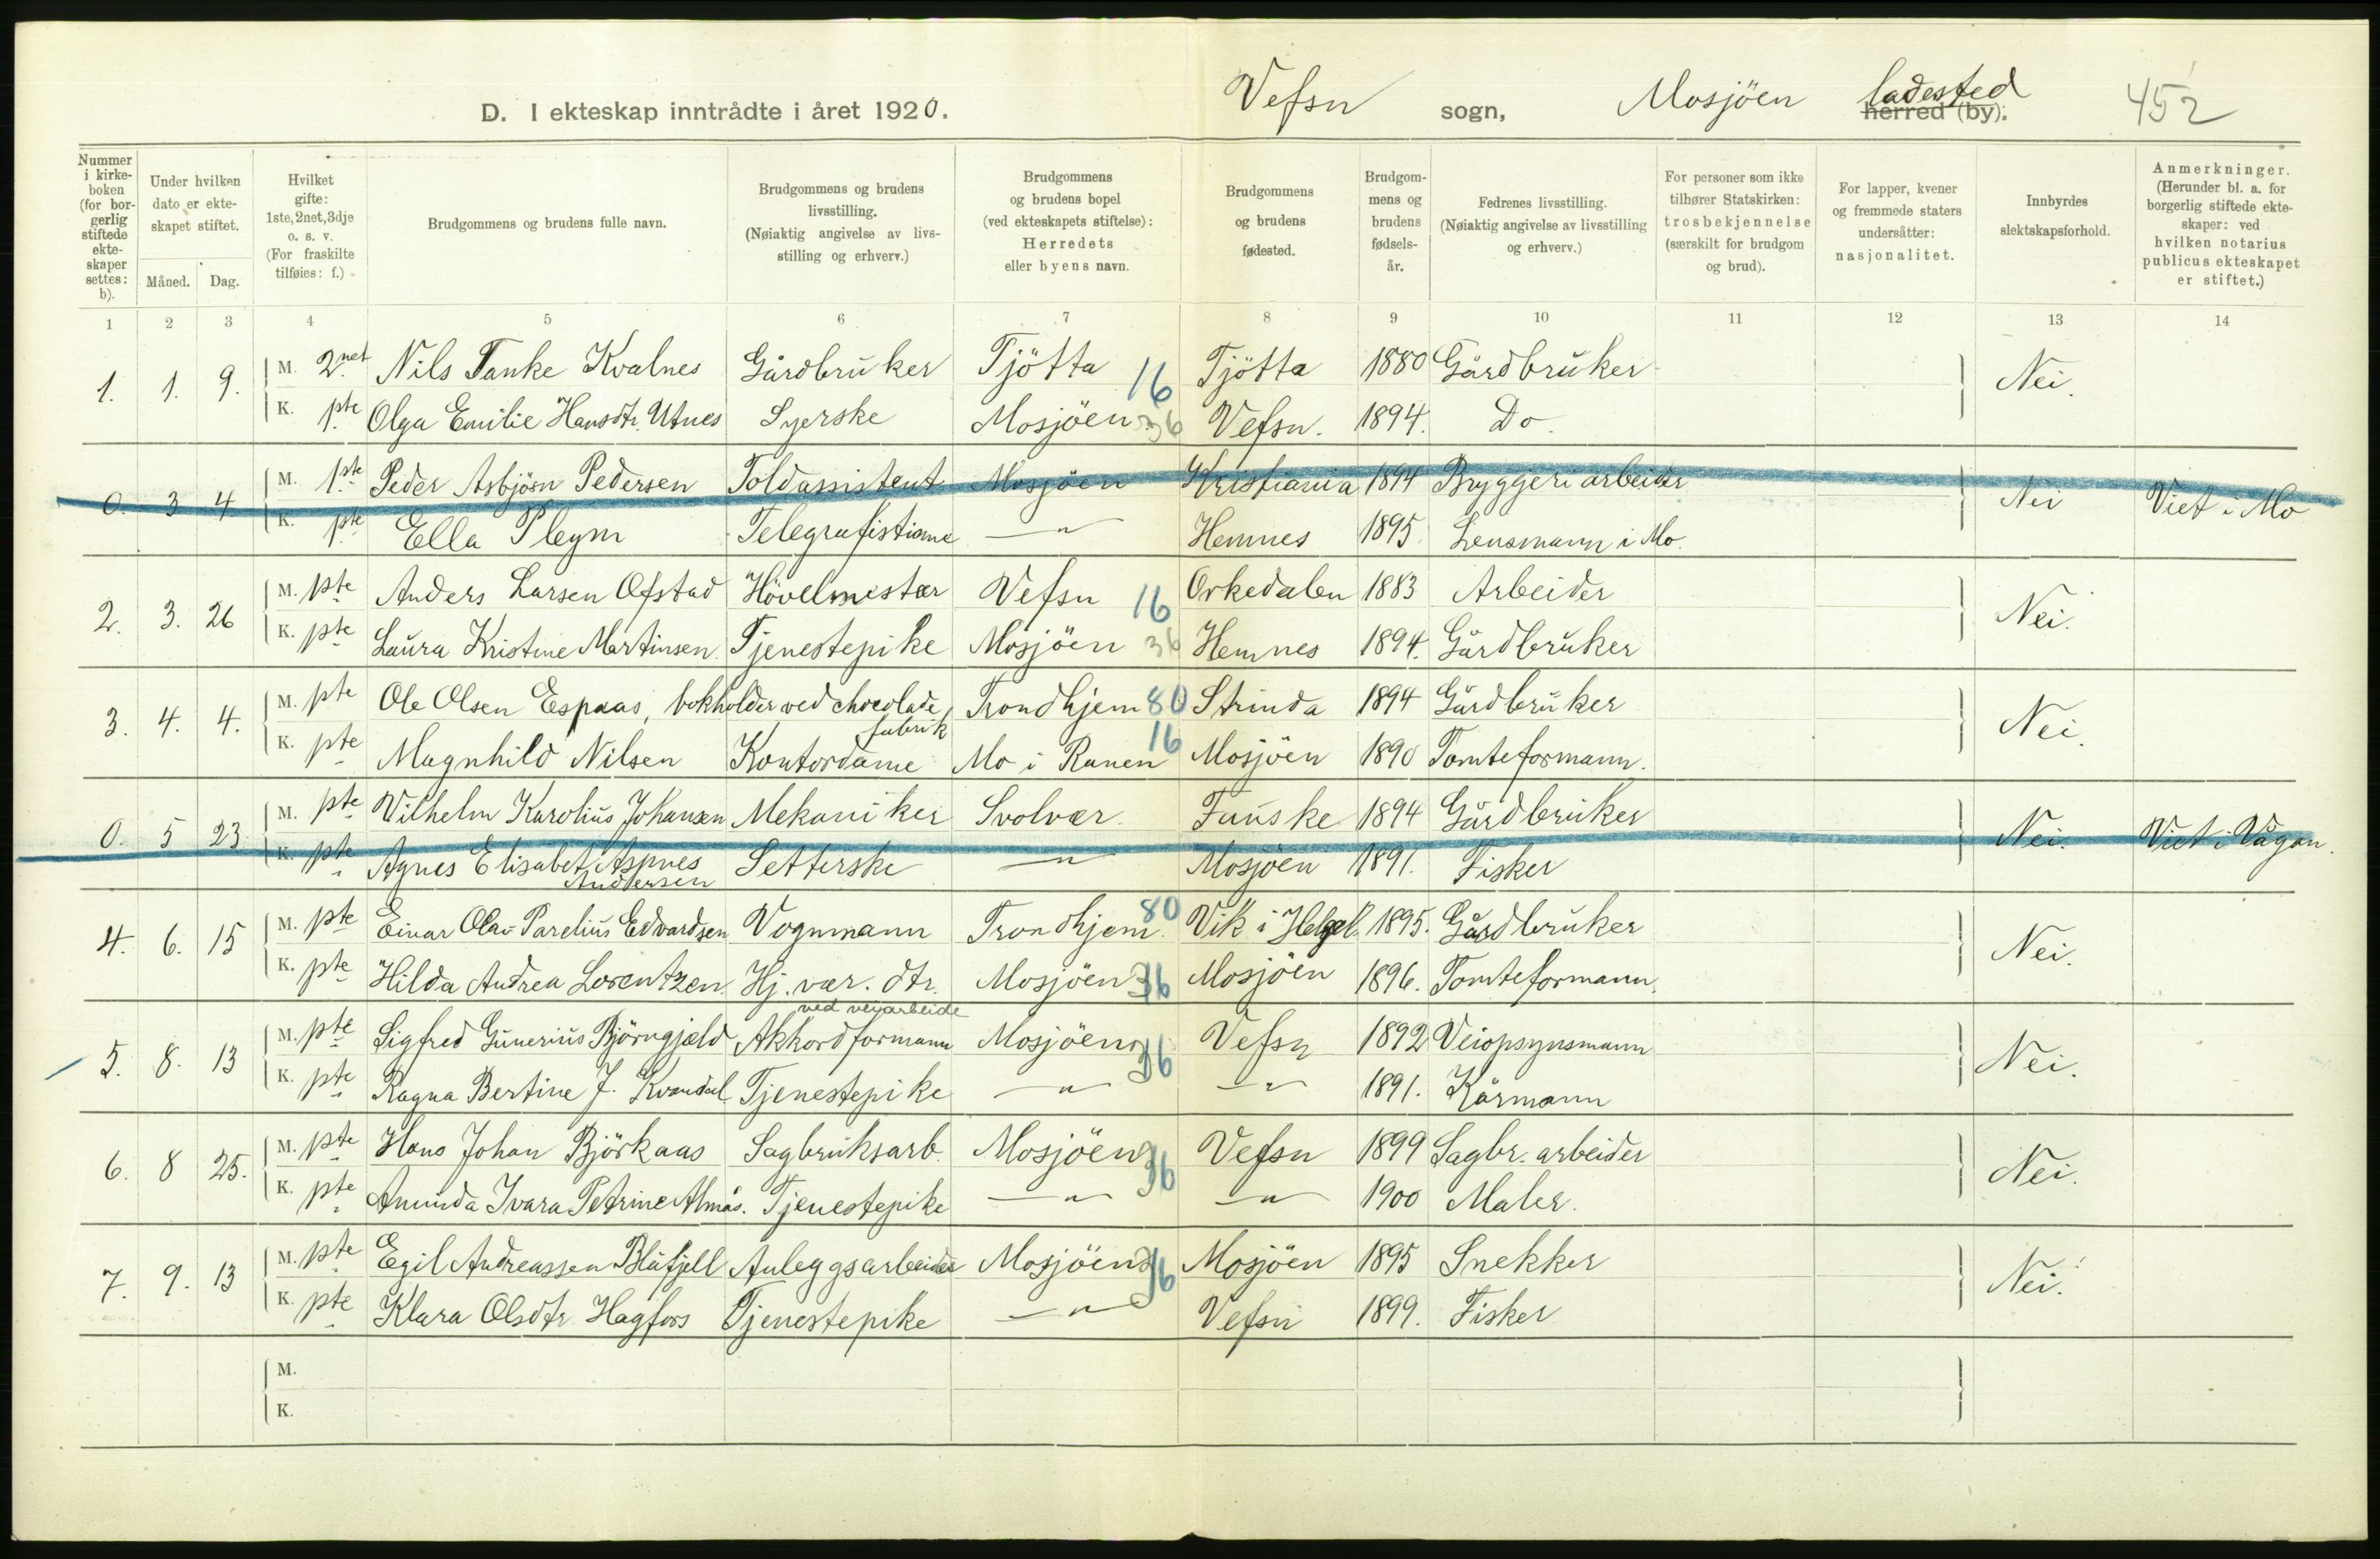 D. I ekteskap inntrådte i året 1920. Vefsn sogn, Mosjöen ladested herred (by). 452
Nummer i kirke-boken (for bor-gerlig stiftede ekte-skaper settes: b).
Under hvilken dato er ekte-skapet stiftet.
Måned. Dag.
Hvilket gifte: 1ste, 2net, 3dje o. s. v. (For fraskilte tilføies: f.)
Brudgommens og brudens fulle navn.
Brudgommens og brudens livsstilling. (Nøiaktig angivelse av livs-stilling og erhverv.)
Brudgommens og brudens bopel (ved ekteskapets stiftelse): Herredets eller byens navn.
Brudgommens og brudens fødested.
Brudgom-mens og brudens fødsels-år.
Fedrenes livsstilling. (Nøiaktig angivelse av livsstilling og erhverv.)
For personer som ikke tilhører Statskirken: trosbekjennelse (særskilt for brudgom og brud).
For lapper, kvener og fremmede staters undersåtter: nasjonalitet.
Innbyrdes slektskapsforhold.
Anmerkninger. (Herunder bl. a. for borgerlig stiftede ekte-skaper: ved hvilken notarius publicus ekteskapet er stiftet.)
1 2 3 4 5 6 7 8 9 10 11 12 13 14
1. 1. 9. M. 2net Nils Tanke Kvalnes Gårdbruker Tjötta 16 Tjötta 1880 Gårdbruker Nei.
K. 1pte Olga Emilie Hansdtr. Utnes Syerske Mosjöen 36 Vefsn. 1894. Do.
0. 3 4 M. 1ste Peder Asbjörn Pedersen Toldassistent Mosjöen Kristiania 1894 Bryggeriarbeider Nei Viet i Mo
K. pte Ella Pleym Telegrafistinne —"— Hemnes 1895. Lensmann i Mo.
2. 3. 26 M. pte Anders Larsen Ofstad Hövelmester Vefsn 16 Orkedalen 1883 Arbeider Nei.
K. pte Laura Kristine Martinsen. Tjenestepike Mosjöen 36 Hemnes 1894. Gårdbruker
3. 4. 4. M. pte Ole Olsen Espaas, bokholder ved chocolade fabrik Trondhjem 80 Strinda 1894 Gårdbruker Nei.
K. pte Magnhild Nilsen Kontordame Mo i Ranen 16 Mosjöen 1890 Tomteformann.
0. 5 23 M. pte Vilhelm Karolius Johansen Mekaniker Svolvær. Fauske 1894 Gårdbruker Nei. Viet i Vågan.
K. pte Agnes Elisabet Aspnes Andersen Setterske —"— Mosjöen 1891. Fisker
4. 6. 15 M. pte Einar Olav Parelius Edvardsen Vognmann Trondhjem. 80 Vik i Helgel. 1895. Gårdbruker Nei.
K. pte Hilda Andrea Lorentzen. Hj. vær. dtr. Mosjöen 36 Mosjöen 1896. Tomteformann.
5. 8. 13 M. pte Sigfred Gunerius Björngjæld Akkordformann ved veiarbeide Mosjöen 36 Vefsn 1892 Veiopsynsmann Nei.
K. pte Ragna Bertine J. Kvandal Tjenestepike —"— —"— 1891. Kårmann
6. 8 25. M. pte Hans Johan Björkaas Sagbruksarb. Mosjöen 36 Vefsn 1899 Sagbr. arbeider Nei.
K. pte Amunda Ivara Petrine Almås. Tjenestepike —"— —"— 1900 Maler.
7. 9. 13 M. pte Egil Andreassen Blåfjell Anleggsarbeider Mosjöen 36 Mosjöen 1895 Snekker Nei.
K. pte Klara Olsdtr. Hagfors Tjenestepike —"— Vefsn 1899. Fisker
M.
K.